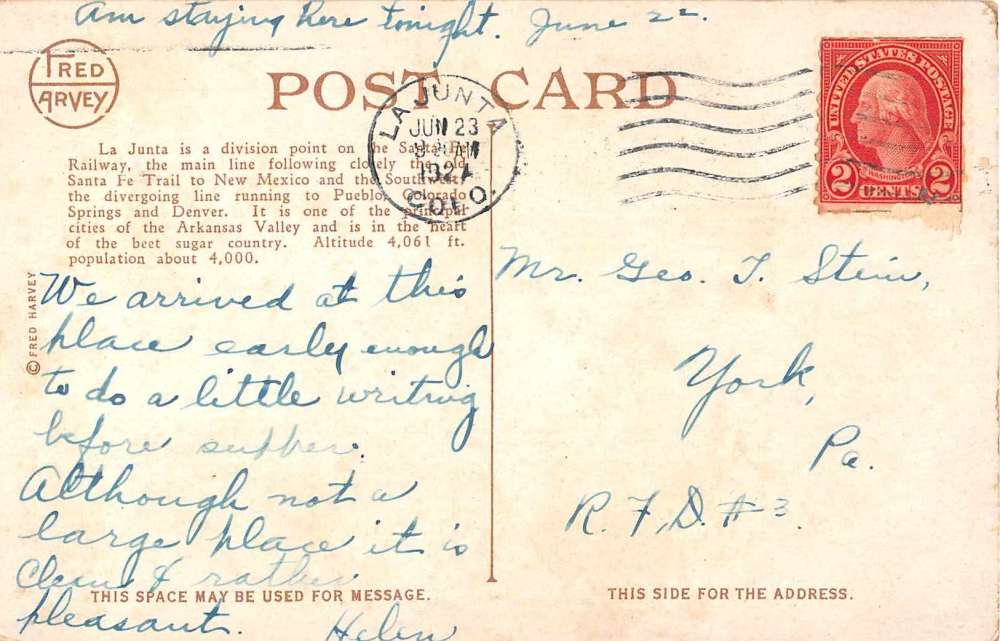 Am staying here tonight. June 22.
FRED HARVEY
POST CARD
LA JUNTA
JUN 23
AM
COLO.
UNITED STATES POSTAGE
WASHINGTON
2 CENTS 2
La Junta is a division point on the Santa Fe
Railway, the main line following closely the old
Santa Fe Trail to New Mexico and the Southwest;
the divergoing line running to Pueblo, Colorado
Springs and Denver. It is one of the principal
cities of the Arkansas Valley and is in the heart
of the beet sugar country. Altitude 4,061 ft.
population about 4,000.
© FRED HARVEY
We arrived at this
place early enough
to do a little writing
before supper.
Although not a
large place it is
clean & rather
pleasant. Helen
THIS SPACE MAY BE USED FOR MESSAGE.
Mr. Geo. T. Stein,
York,
Pa.
R. F. D. # 3.
THIS SIDE FOR THE ADDRESS.